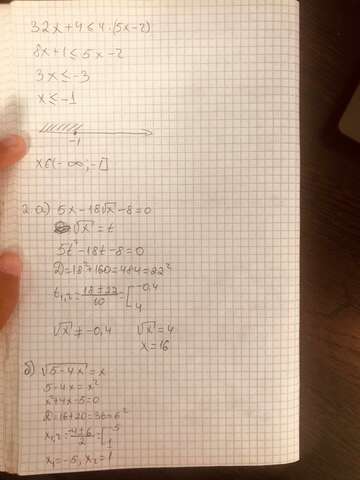 32x+4≤4·(5x-2)
8x+1≤5x-2
3x≤-3
x≤-1
-1
x∈(-∞;-1]
2. а) 5x-18√x-8=0
√x=t
5t²-18t-8=0
D=18²+160=484=22²
t₁,₂=(18±22)/10=[-0,4
4
√x≠-0,4 √x=4
x=16
б) √(5-4x)=x
5-4x=x²
x²+4x-5=0
D=16+20=36=6²
x₁,₂=(-4±6)/2=[-5
1
x₁=-5, x₂=1